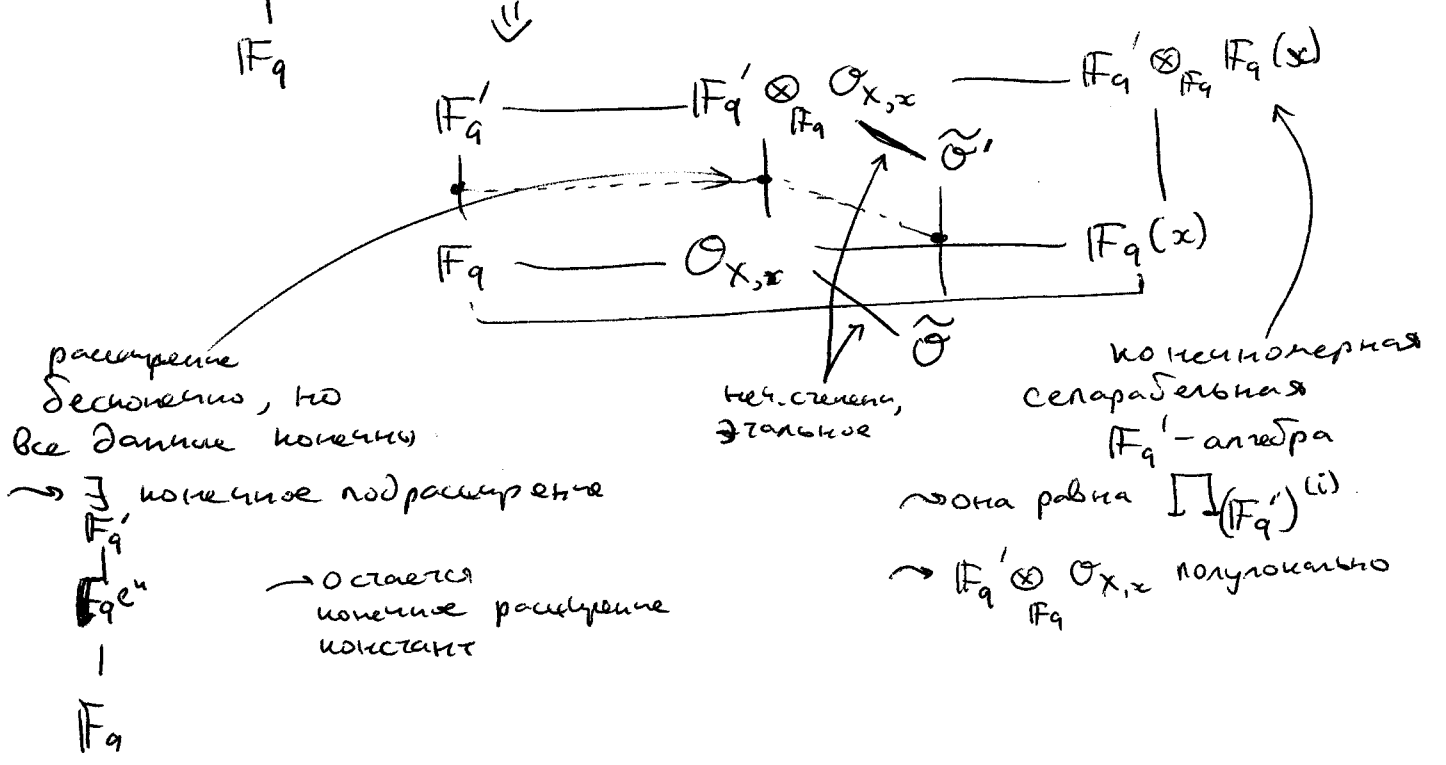 𝔽_q
⇓
𝔽_q' — 𝔽_q' ⊗_{𝔽_q} O_{X,x} — 𝔽_q' ⊗_{𝔽_q} 𝔽_q(x)
Õ'
𝔽_q — O_{X,x} — 𝔽_q(x)
Õ
расширение
бесконечно, но
все данные конечны
⇝ ∃ конечное подрасширение
𝔽_q'
|
𝔽_{q^{ℓ^n}}
|
𝔽_q
→ остается
конечное расширение
констант
неч. степени,
этальное
конечномерная
сепарабельная
𝔽_q' - алгебра
⇝ она равна ∏ (𝔽_q')^{(i)}
⇝ 𝔽_q' ⊗_{𝔽_q} O_{X,x} полулокально